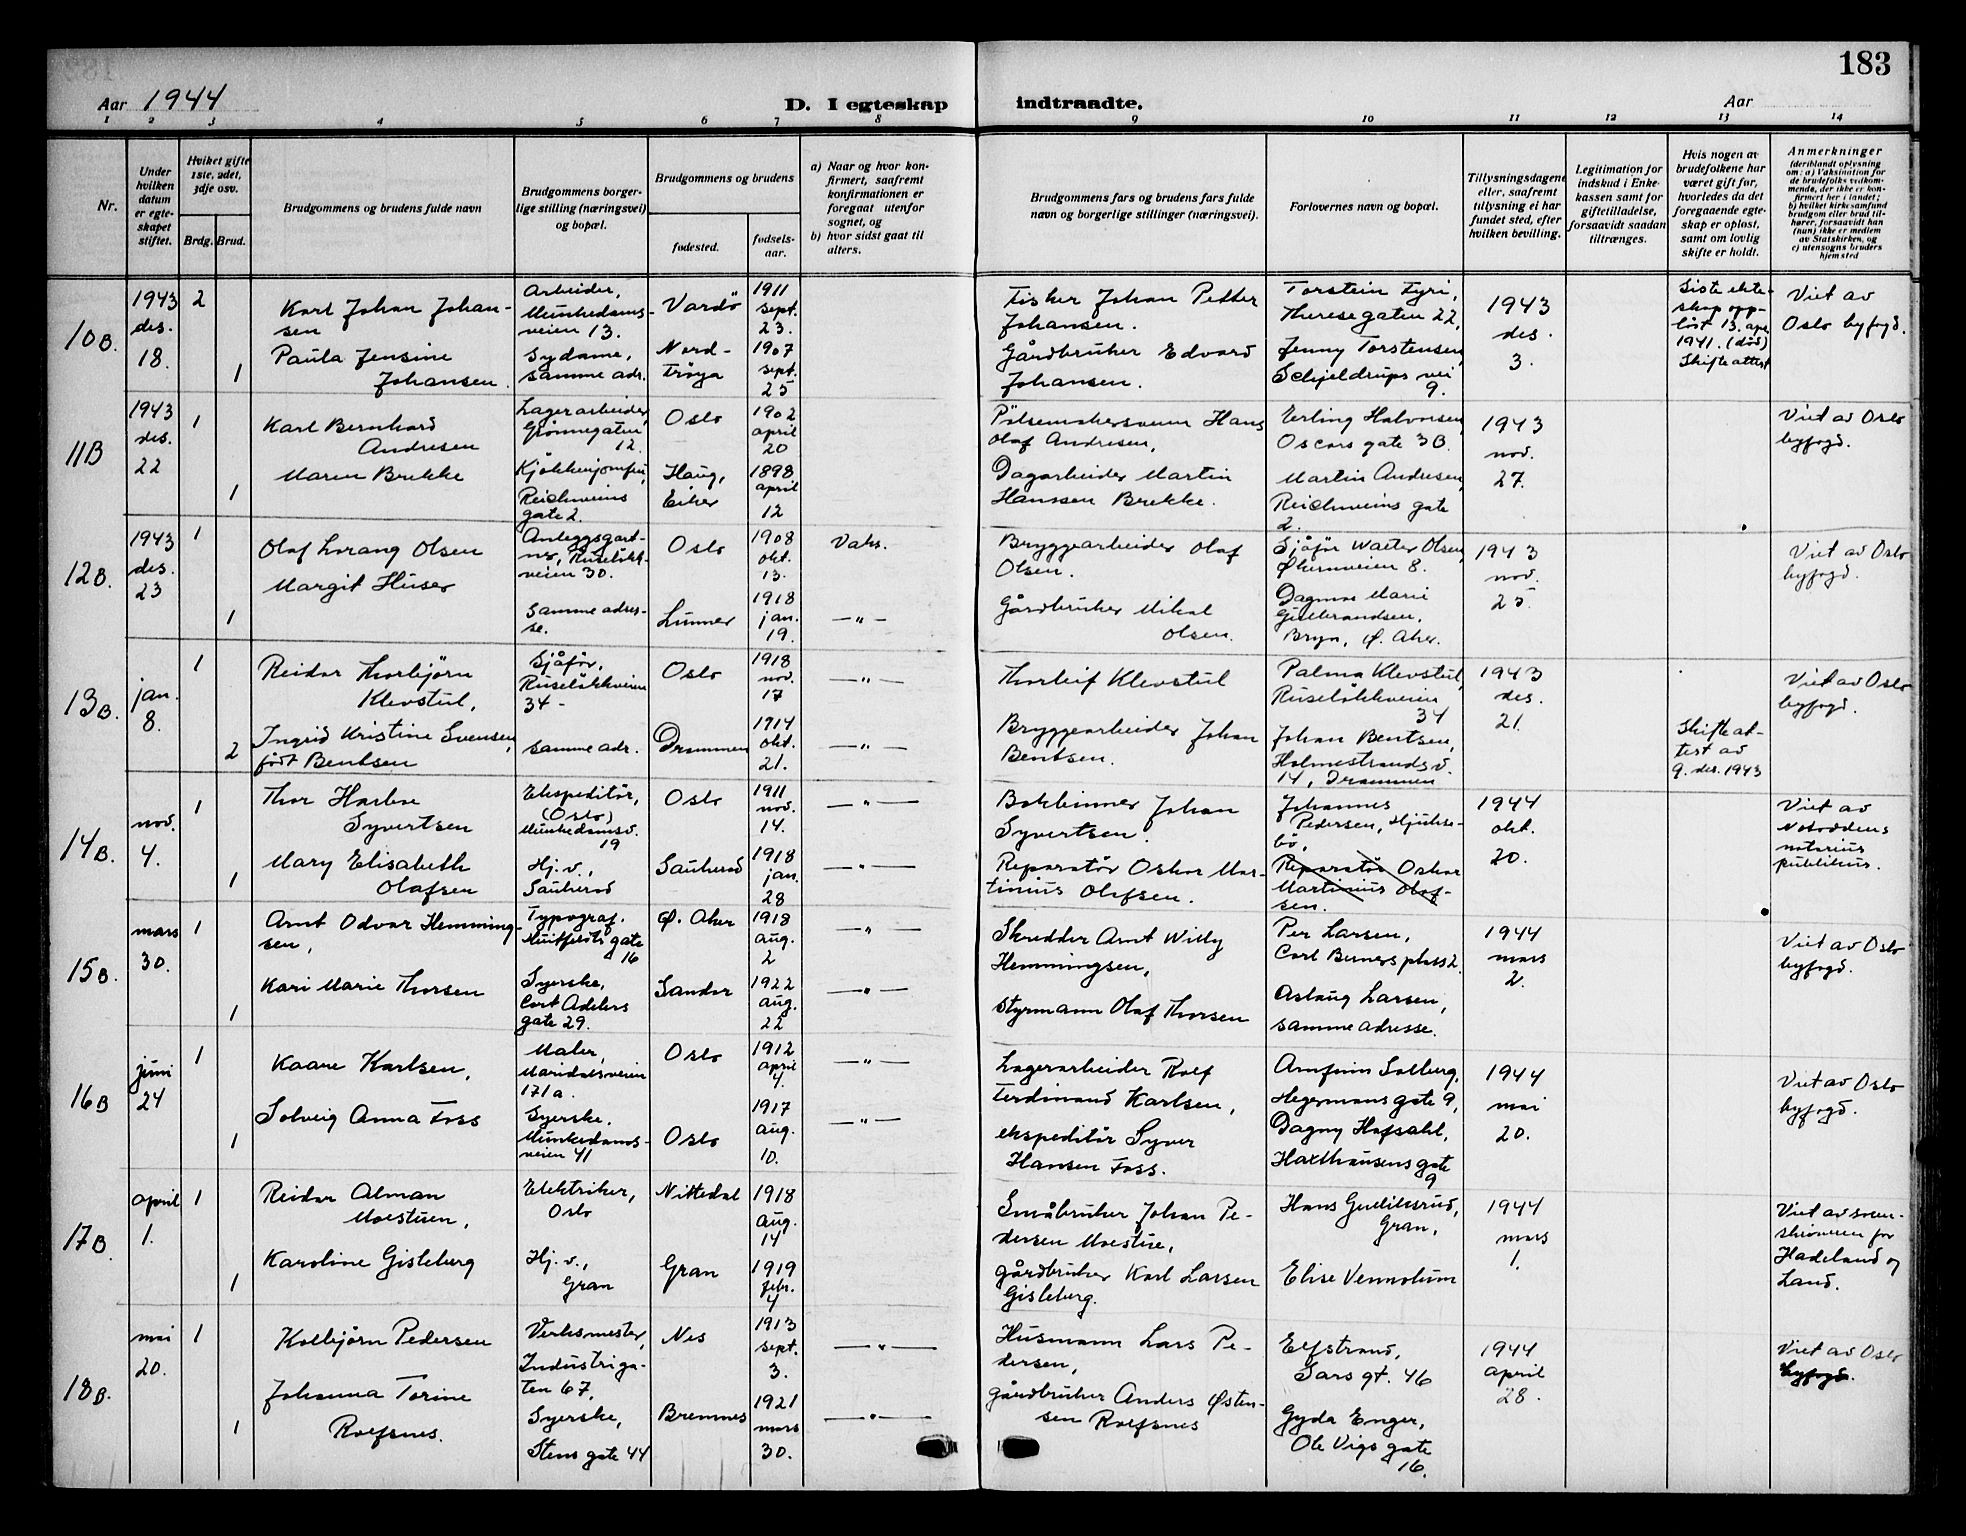 183
Aar 1944
D. I egteskap indtraadte.
Aar
1 2 3 4 5 6 7 8 9 10 11 12 13 14
Nr.
Under hvilken datum er egteskapet stiftet.
Hvilket gifte 1ste, 2det, 3dje osv.
Brdg. Brud.
Brudgommens og brudens fulde navn
Brudgommens borgerlige stilling (næringsvei) og bopæl.
Brudgommens og brudens
fødested.
fødselsaar.
a) Naar og hvor konfirmert, saafremt konfirmationen er foregaat utenfor sognet, og
b) hvor sidst gaat til alters.
Brudgommens fars og brudens fars fulde navn og borgerlige stillinger (næringsvei).
Forlovernes navn og bopæl.
Tillysningsdagene eller, saafremt tillysning ei har fundet sted, efter hvilken bevilling.
Legitimation for indskud i Enkekassen samt for giftetilladelse, forsaavidt saadan tiltrænges.
Hvis nogen av brudefolkene har været gift før, hvorledes da det foregaaende egteskap er opløst, samt om lovlig skifte er holdt.
Anmerkninger
(deriblandt oplysning om: a) Vaksination for de brudefolks vedkommende, der ikke er konfirmert her i landet; b) hvilket kirkesamfund brudgom eller brud tilhører, forsaavidt han (hun) ikke er medlem av Statskirken, og c) utensogns bruders hjemsted
10B.
1943 des. 18.
2
Karl Johan Johansen
Arbeider, Munkedamsveien 13.
Vardö
1911 sept. 23.
Fisker Johan Petter Johansen.
Torstein Fyri, Therese gaten 22,
1943 des. 3.
Siste ekteskap oppløst 13. apr. 1941. (död) Skifteattest
Viet av Oslo byfogd.
1
Paula Jensine Johansen.
Sydame, samme adr.
Nordfröya
1907 sept. 25
Gårdbruker Edvard Johansen.
Jenny Torstensen, Schjeldrups vei 9.
11B
1943 des. 22
1
Karl Bernhard Andresen
Lagerarbeider, Grönnegaten 12.
Oslo
1902 april 20
Pölsemakersvenn Hans Olaf Andresen,
Erling Halvorsen, Oscars gate 3B.
1943 nov. 27.
Viet av Oslo byfogd.
1
Maren Brekke
Kjökkenjomfru, Reichweins gate 2.
Haug, Eiker
1898 april 12
Dagarbeider Martin Hanssen Brekke.
Martin Andresen, Reichweins gate 2.
12B.
1943 des. 23
1
Olaf Lorang Olsen
Anleggsgartner, Ruselökkveien 30.
Oslo
1908 okt. 13.
Vaks.
Bryggearbeider Olaf Olsen.
Sjåför Walter Olsen, Økernveien 8.
1943 nov. 25.
Viet av Oslo byfogd.
1
Margit Huser
Samme adresse.
Lunner
1918 jan. 19.
— " —
Gårdbruker Mikal Olsen.
Dagmar Marie Gulbrandsen, Bryn, Ø. Aker.
13B.
jan. 8.
1
Reidar Thorbjörn Klevstul,
Sjåför, Ruselökkveien 34 -
Oslo
1918 nov. 17
— " —
Thorleif Klevstul
Palma Klevstul, Ruselökkveien 34
1943 des. 21.
Viet av Oslo byfogd.
2
Ingrid Kristine Svensen, født Bentsen
samme adr.
Drammen
1914 okt. 21.
— " —
Bryggearbeider Johan Bentsen.
Johan Bentsen, Holmestrandsv. 14, Drammen
Skifteattest av 9. des. 1943
14B.
nov. 4.
1
Thor Harbo Syvertsen
Ekspeditör, (Oslo) Munkedamsv. 19
Oslo
1911 nov. 14.
— " —
Bokbinner Johan Syvertsen.
Johannes Pedersen, Hjuksebö,
1944 okt. 20.
Viet av Notoddens notarius publikus.
1
Mary Elisabeth Olafsen
Hj. v., Sauherad
Sauherad
1918 jan. 28
— " —
Reparatör Oskar Martinius Olafsen.
Reparatör Oskar Martinius Olafsen.
15B.
mars 30.
1
Arnt Odvar Hemmingsen,
Typograf. Muitfeldts gate 16
Ø. Aker
1918 aug. 2
— " —
Skredder Arnt Willy Hemmingsen,
Per Larsen, Carl Berners plass 2.
1944 mars 2.
Viet av Oslo byfogd.
1
Kari Marie Thorsen
Syerske, Cort Adelers gate 29.
Sandar
1922 aug. 22
— " —
Styrmann Olaf Thorsen
Aslaug Larsen, samme adresse.
16B
juni 24
1
Kaare Karlsen,
Maler, Maridalsveien 171a.
Oslo
1912 april 4.
— " —
Lagerarbeider Rolf Ferdinand Karlsen,
Arnfinn Solberg, Hegermans gate 9,
1944 mai 20.
Viet av Oslo byfogd.
1
Solveig Anna Foss
Syerske. Munkedamsveien 41
Oslo
1917 aug. 10.
— " —
ekspeditör Syver Hansen Foss.
Dagny Hofsahl, Haxthausens gate 9
17B.
april 1.
1
Reidar Alman Moestuen,
Elektriker, Oslo
Nittedal
1918 aug. 14
Småbruker Johan Pedersen Moestue,
Hans Gudiksrud, Gran,
1944 mars 1.
Viet av sorenskriveren for Hadeland og Land.
1
Karoline Gisleberg
Hj. v., Gran
Gran
1919 febr. 4
gårdbruker Karl Larsen Gisleberg.
Elise Vennolum
18B.
mai 20.
1
Kolbjörn Pedersen
Verksmester, Industrigaten 67.
Nes
1913 sept. 3.
— " —
Husmann Lars Pedersen,
Elfstrand, Sars gt. 46
1944 april 28.
Viet av Oslo byfogd.
1
Johanna Torine Rolfsnes.
Syerske, Stens gate 44
Bremnes
1921 mars 30.
— " —
gårdbruker Anders Østensen Rolfsnes
Gyda Enger, Ole Vigs gate 16.